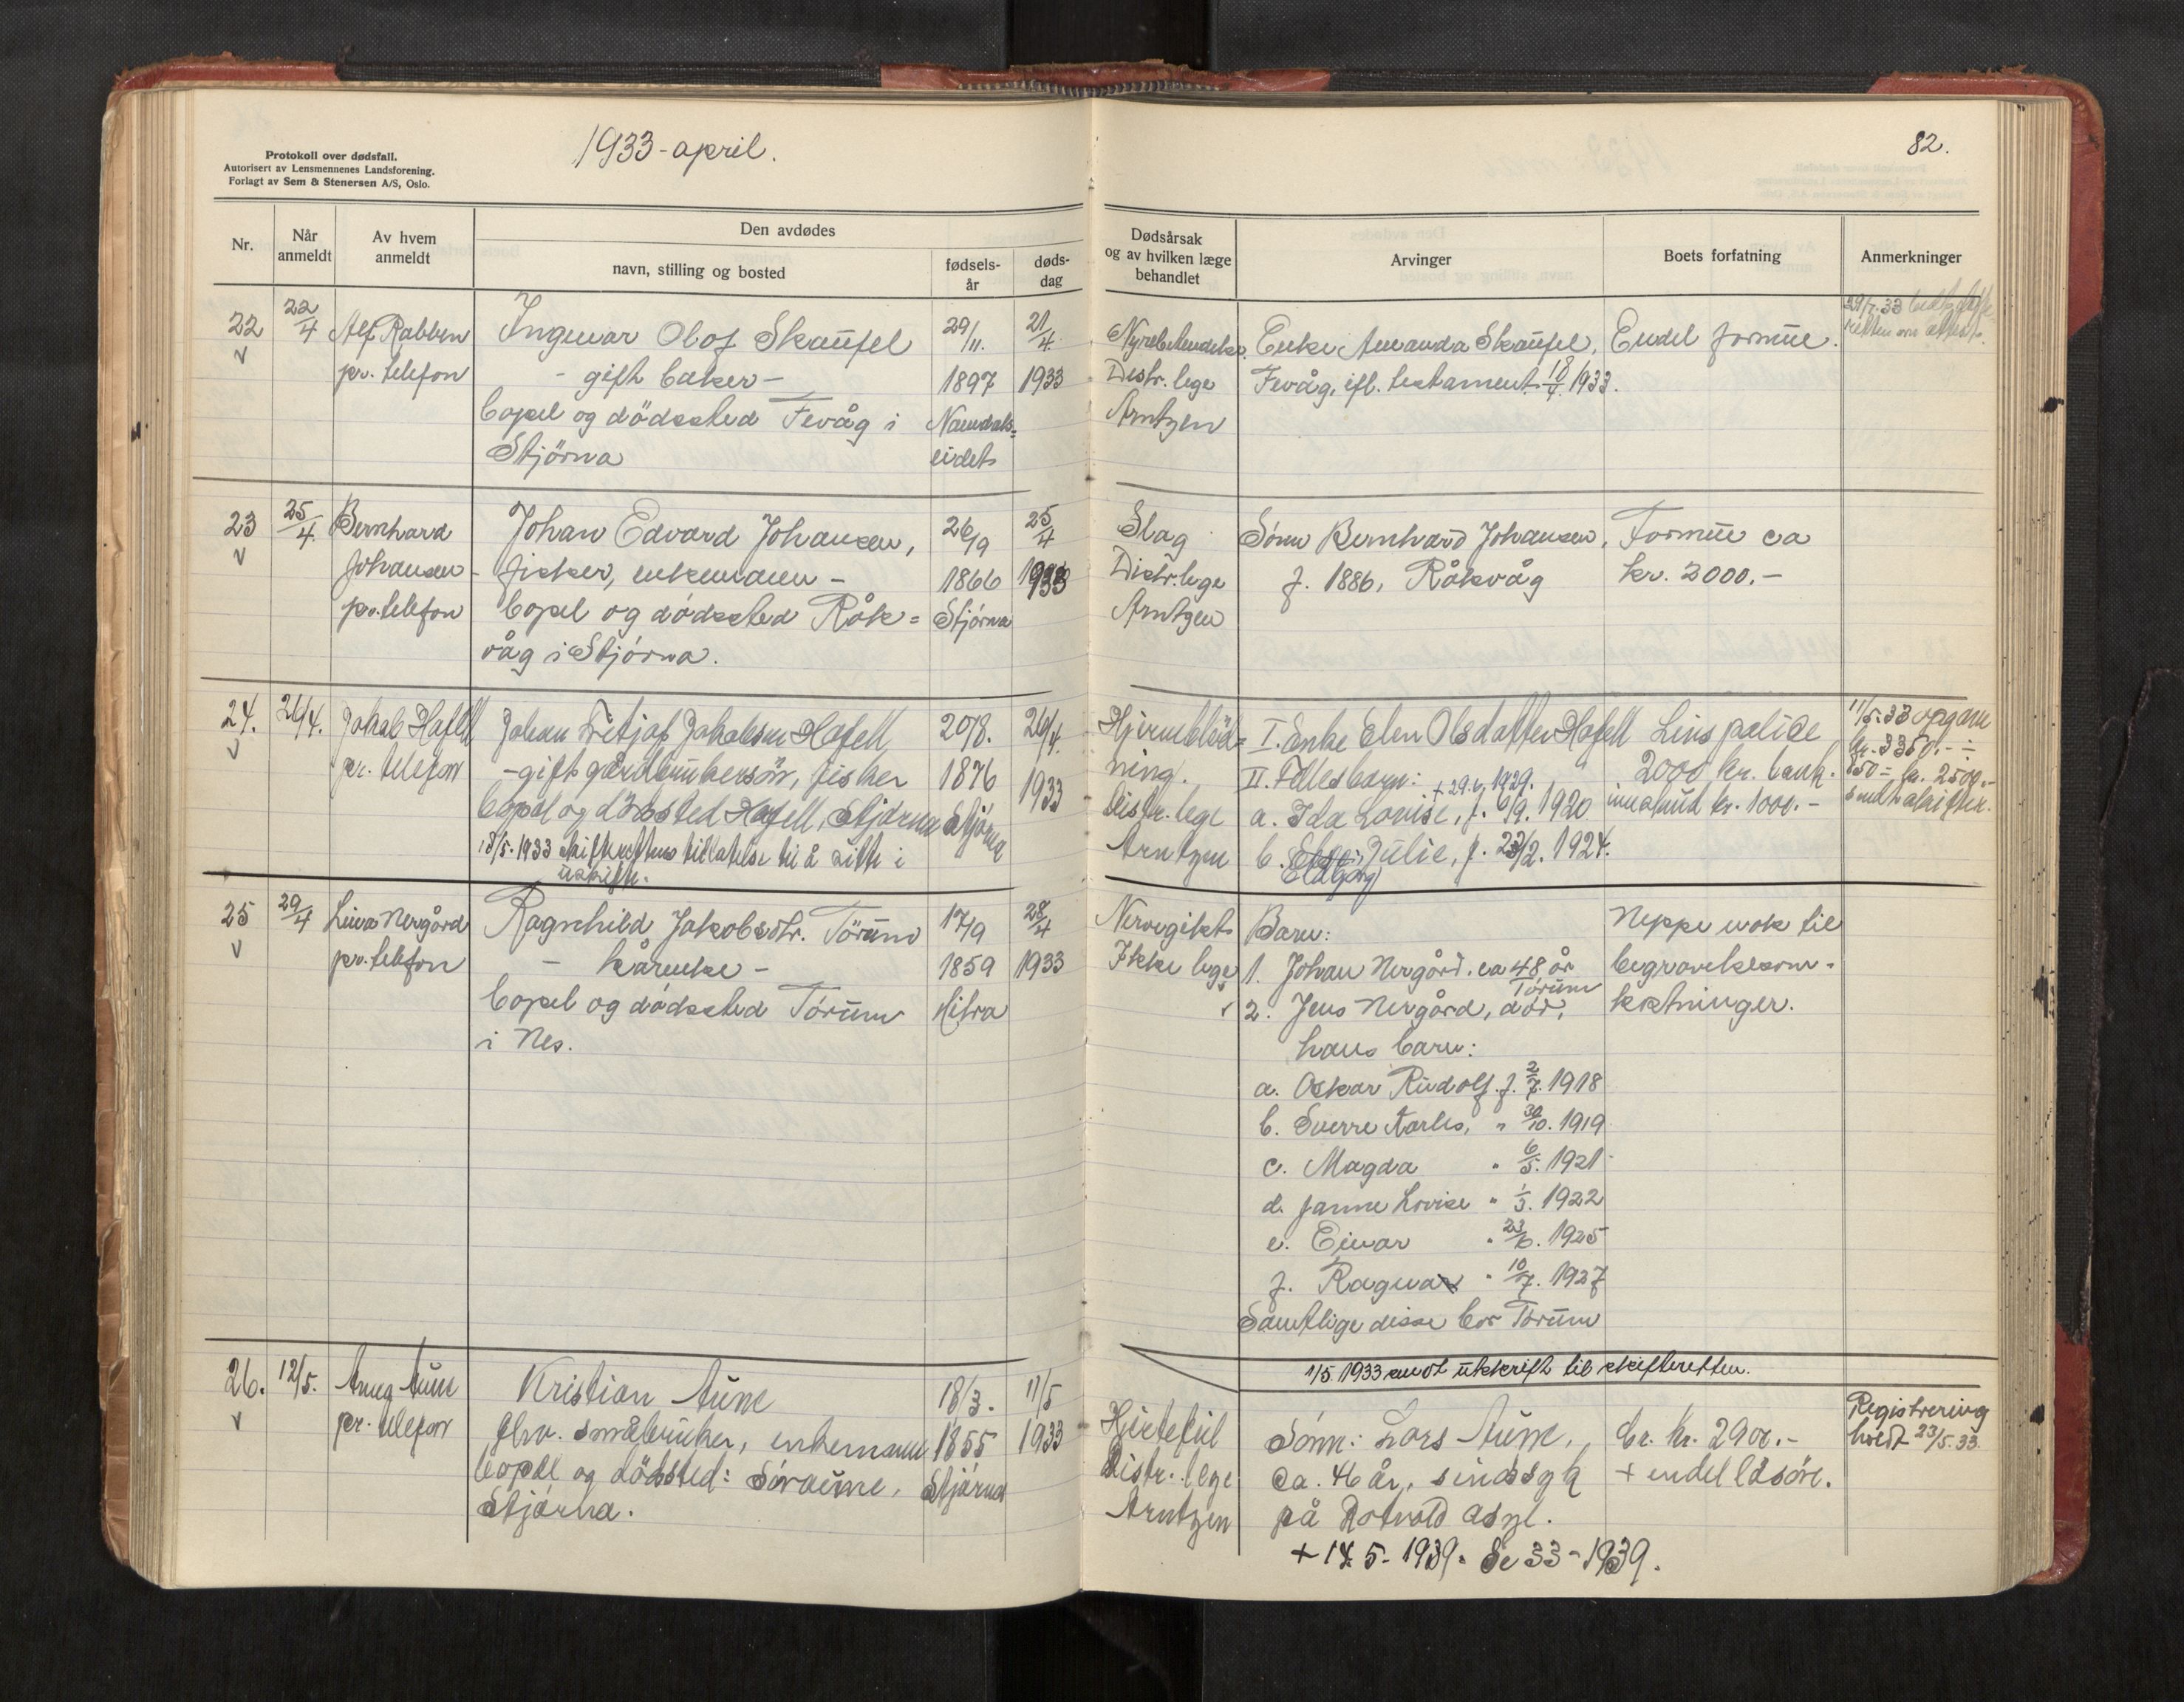 Protokoll over dødsfall.
Autorisert av Lensmennenes Landsforening.
Forlagt av Sem & Stenersen A/S, Oslo.
1933 - april.
82.
Nr.
Når anmeldt
Av hvem anmeldt
Den avdødes
navn, stilling og bosted
fødsels-år
døds-dag
Dødsårsak og av hvilken læge behandlet
Arvinger
Boets forfatning
Anmerkninger
22
22/4
Alf Rabben
pr. telefon
Ingvar Olof Skaufel
- gift baker -
bopel og dödssted Fevåg i
Stjörna
29/11.
1897
Namdals=
eidet
21/4.
1933
Nyrebetendelse.
Distr. lege
Arntzen
Enke Amanda Skaufel,
Fevåg, ifl. testament 18/4. 1933.
Endel formue.
23
25/4.
Bernhard
Johansen
pr. telefon
Johan Edvard Johansen,
- fisker, enkemann -
bopel og dödssted Råk=
våg i Stjörna.
26/9
1866
Stjörna
25/4
1933
Slag
Distr. lege
Arntzen
Sönn Bernhard Johansen,
f. 1886, Råkvåg
Formue ca
kr. 2000.-
24.
26/4.
Jakob Hafell
pr. telefon
Johan Fritjof Jakobsen Hafell
- gift gårdbrukersön, fisker
bopel og dödssted Hafell, Stjörna
18/5. 1933 skifterettens tillatelse til å sitte i
uskifte.
20/8.
1876
Stjörna
26/4.
1933
Hjerneblöd=
ning.
Distr. lege
Arntzen
I. Enke Elen Olsdatter Hafell
II. Fellesbarn: + 29. 1929.
a. Ida Louise, f. 6/9. 1920
b. Eldbjørg Julie, f. 23/2. 1924.
Livspolice
2000 kr. bank-
innskud kr. 1000.-
11/5.33 opgave
kr. 3350.- ÷
850 = kr. 2500.-
25
29/4
Lina Nergård
pr. telefon
Ragnhild Jakobsdtr. Törum
- kårenke -
bopel og dödssted Törum
i Nes.
17/9
1859
Hitra
28/4
1933
Nervegikt
Ikke lege
Barn:
1. Johan Nergård. ca 48 år
Törum
2. Jens Nergård, död,
hans barn:
a. Oskar Rudolf. f. 2/7. 1918
b. Sverre Karles, " 30/10. 1919
c. Magda " 6/5. 1921
d. Janne Lovise " 1/3. 1922
e. Einar " 23/6. 1925
f. Ragna " 10/7. 1927
Samtlige disse bor Törum
Neppe nok til
begravelsesom-
kostninger.
1/5. 1933 sendt utskrift til skifteretten.
26.
12/5.
Anna Aune
pr. telefon
Kristian Aune
fhv. småbruker, enkemann
bopel og dödssted: Söraune,
Stjörna.
18/3.
1855
Stjörna
11/5
1933
Hjertefeil
Distr. lege
Arntzen
Sönn: Lars Aune,
ca. 46 år, sindssyk
på Rotvold asyl.
+ 14. 5 - 1939. Se 33 - 1939.
br. kr. 2900.-
+ endel lösöre.
Registrering
holdt 23/5. 33.